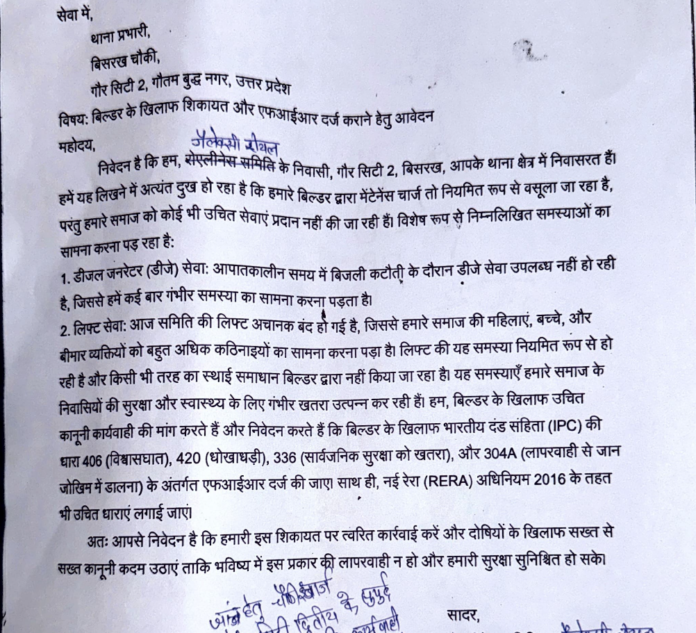 सेवा में,
थाना प्रभारी,
बिसरख चौकी,
गौर सिटी 2, गौतम बुद्ध नगर, उत्तर प्रदेश
विषय: बिल्डर के खिलाफ शिकायत और एफआईआर दर्ज कराने हेतु आवेदन
महोदय,
गैलेक्सी रॉयल
निवेदन है कि हम, सेएलीनेस समिति के निवासी, गौर सिटी 2, बिसरख, आपके थाना क्षेत्र में निवासरत हैं।
हमें यह लिखने में अत्यंत दुख हो रहा है कि हमारे बिल्डर द्वारा मेंटेनेंस चार्ज तो नियमित रूप से वसूला जा रहा है,
परंतु हमारे समाज को कोई भी उचित सेवाएं प्रदान नहीं की जा रही हैं। विशेष रूप से निम्नलिखित समस्याओं का
सामना करना पड़ रहा है:
1. डीजल जनरेटर (डीजे) सेवा: आपातकालीन समय में बिजली कटौती के दौरान डीजे सेवा उपलब्ध नहीं हो रही
है, जिससे हमें कई बार गंभीर समस्या का सामना करना पड़ता है।
2. लिफ्ट सेवा: आज समिति की लिफ्ट अचानक बंद हो गई है, जिससे हमारे समाज की महिलाएं, बच्चे, और
बीमार व्यक्तियों को बहुत अधिक कठिनाइयों का सामना करना पड़ा है। लिफ्ट की यह समस्या नियमित रूप से हो
रही है और किसी भी तरह का स्थाई समाधान बिल्डर द्वारा नहीं किया जा रहा है। यह समस्याएँ हमारे समाज के
निवासियों की सुरक्षा और स्वास्थ्य के लिए गंभीर खतरा उत्पन्न कर रही हैं। हम, बिल्डर के खिलाफ उचित
कानूनी कार्यवाही की मांग करते हैं और निवेदन करते हैं कि बिल्डर के खिलाफ भारतीय दंड संहिता (IPC) की
धारा 406 (विश्वासघात), 420 (धोखाधड़ी), 336 (सार्वजनिक सुरक्षा को खतरा), और 304A (लापरवाही से जान
जोखिम में डालना) के अंतर्गत एफआईआर दर्ज की जाए। साथ ही, नई रेरा (RERA) अधिनियम 2016 के तहत
भी उचित धाराएं लगाई जाएं।
अतः आपसे निवेदन है कि हमारी इस शिकायत पर त्वरित कार्रवाई करें और दोषियों के खिलाफ सख्त से
सख्त कानूनी कदम उठाएं ताकि भविष्य में इस प्रकार की लापरवाही न हो और हमारी सुरक्षा सुनिश्चित हो सके।
जांच हेतु चौकी इंचार्ज
द्वितीय के सुपुर्द
सादर,